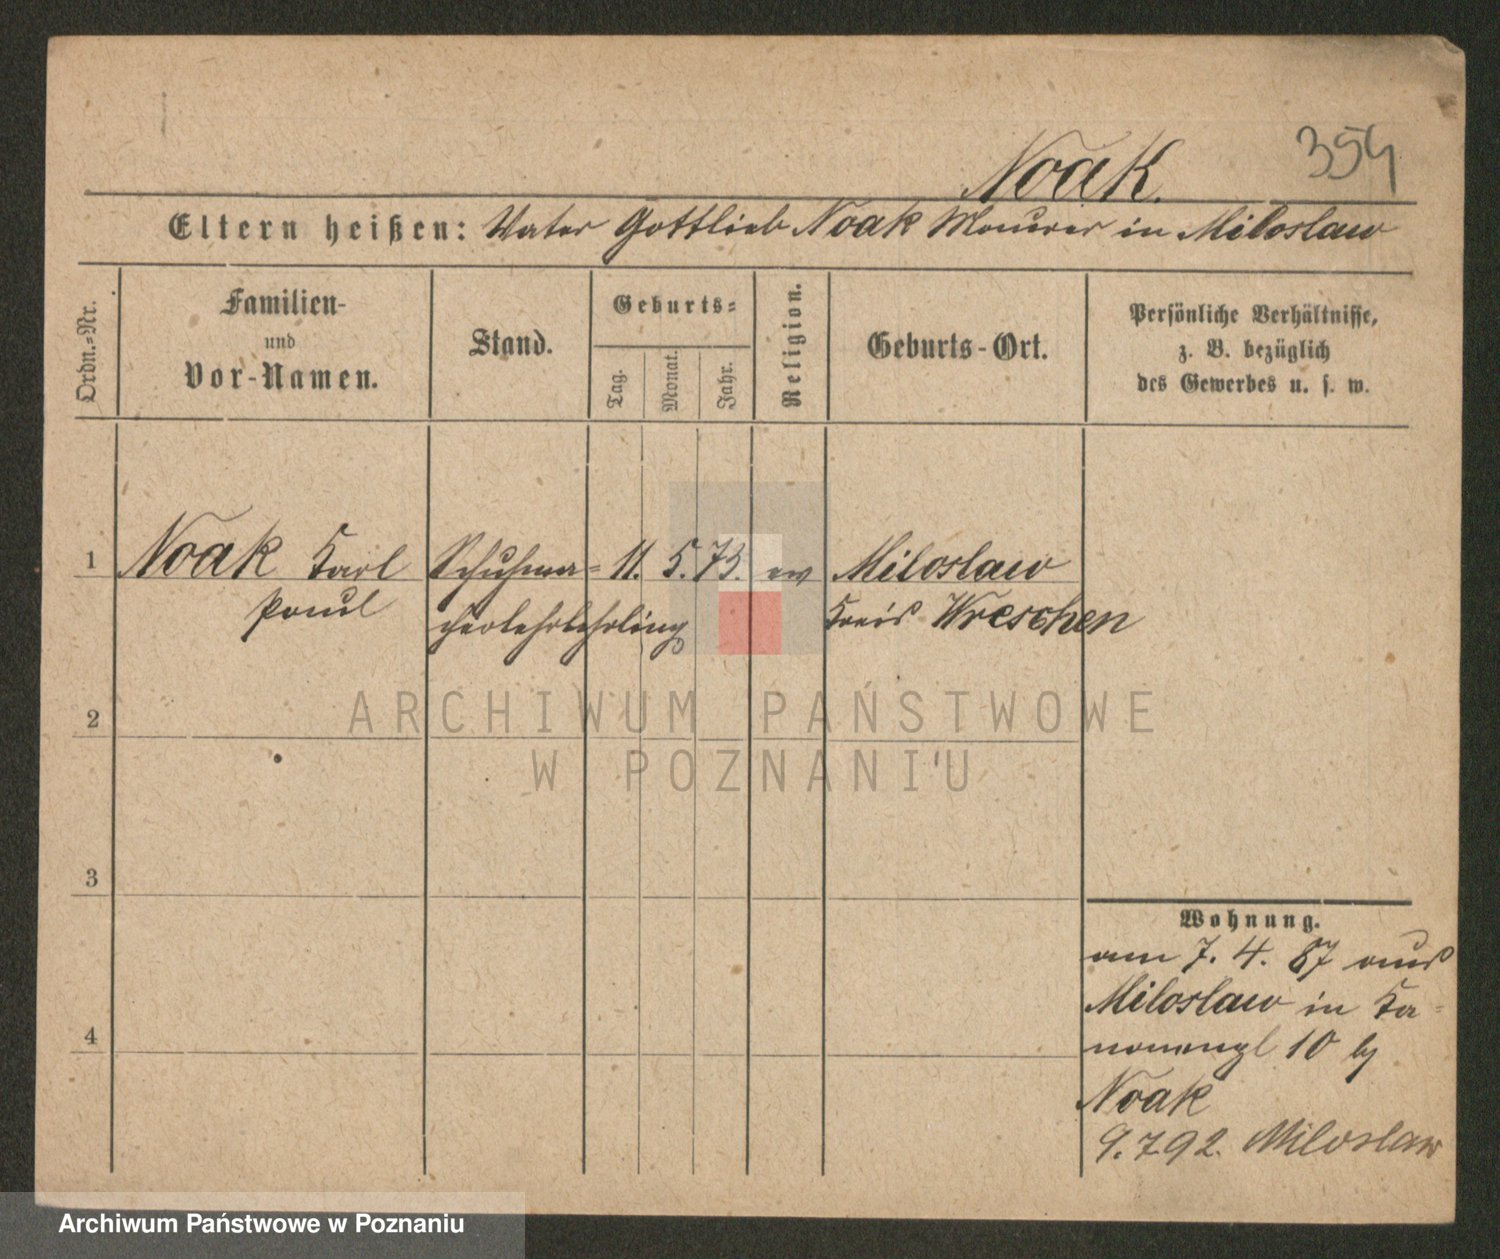 354
Noak.
Eltern heißen: Vater Gottlieb Noak Maurer in Miloslaw
Ordn.-Nr.
Familien-
und
Vor-Namen.
Stand.
Geburts-
Tag.
Monat.
Jahr.
Religion.
Geburts-Ort.
Persönliche Verhältnisse,
z. B. bezüglich
des Gewerbes u. s. w.
1 Noak Karl Schuhma- 11. 5. 73. ev Miloslaw
Paul Kreis Wreschen
2
3
4
Wohnung.
am 7. 4. 87 aus
Miloslaw in Ka-
nonenpl 10 bj
Noak
9.7.92. Miloslaw
ARCHIWUM PAŃSTWOWE
W POZNANIU
Archiwum Państwowe w Poznaniu